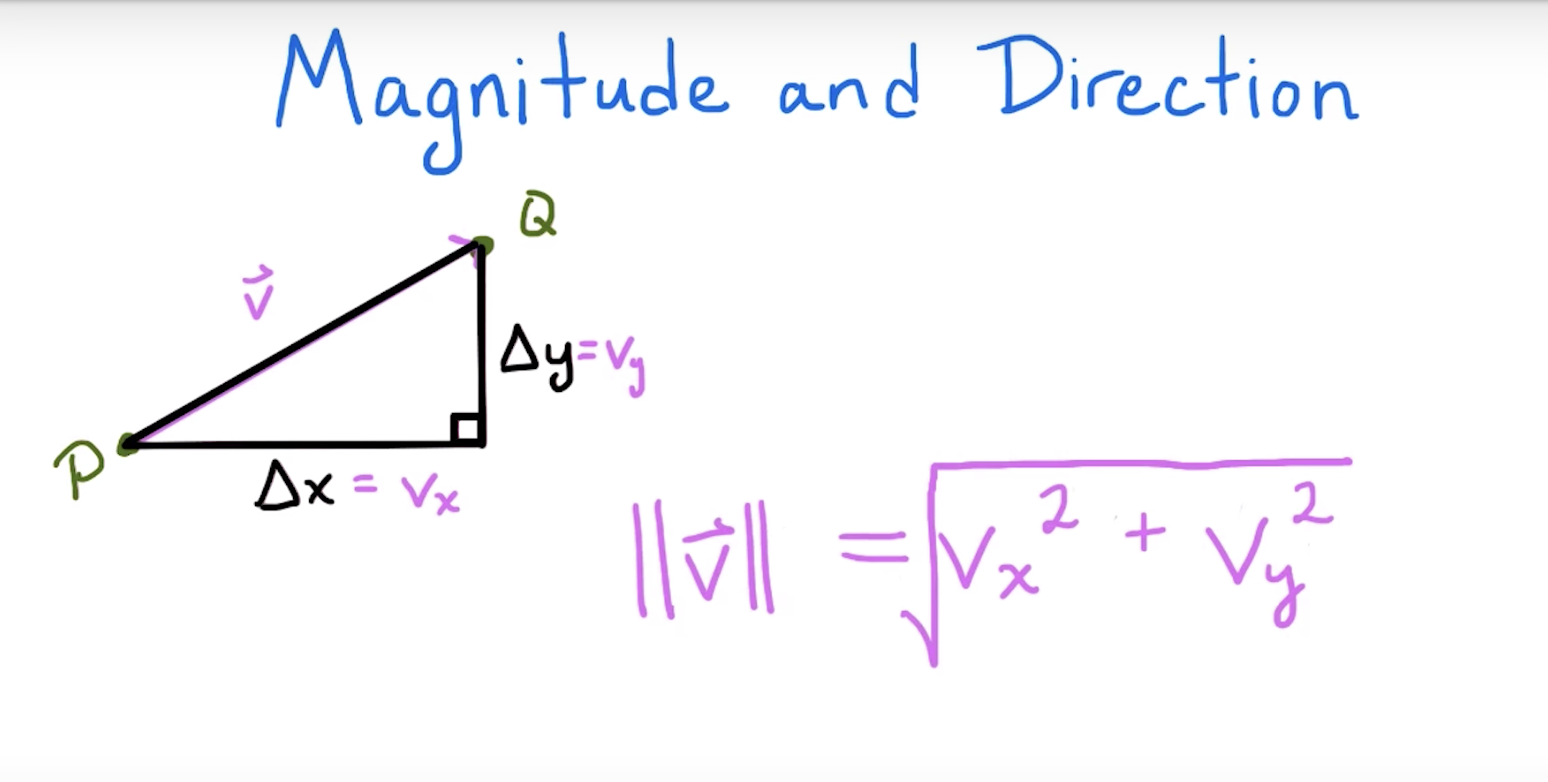 Magnitude and Direction
Q
v⃗
Δy=vy
P
Δx = vx
||v⃗|| = √vx² + vy²